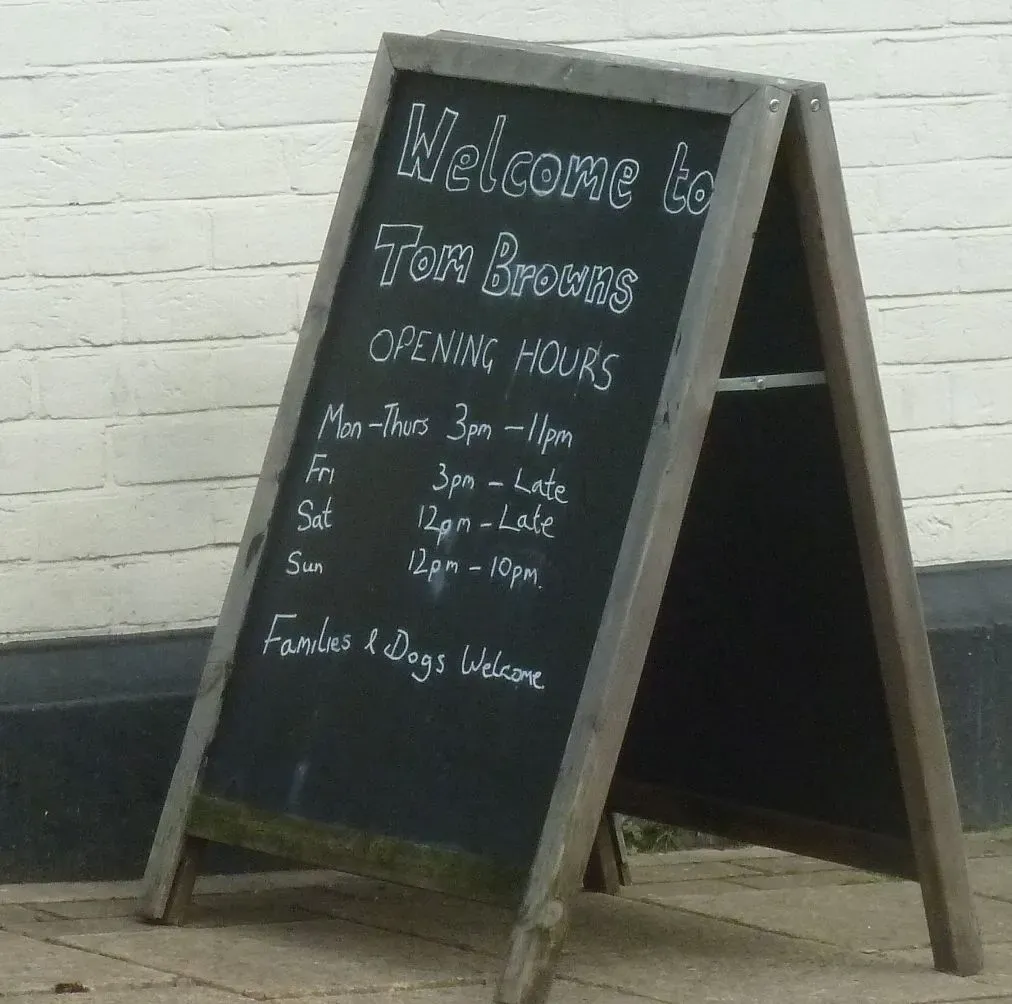 Welcome to
Tom Browns
OPENING HOURS
Mon-Thurs 3pm - 11pm
Fri 3pm - Late
Sat 12pm - Late
Sun 12pm - 10pm.
Families & Dogs Welcome